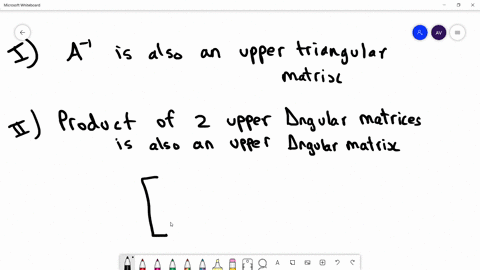 Microsoft Whiteboard
AV
I) A⁻¹ is also an upper triangular
matrix
II) Product of 2 upper Δngular matrices
is also an upper Δngular matrix
[
A